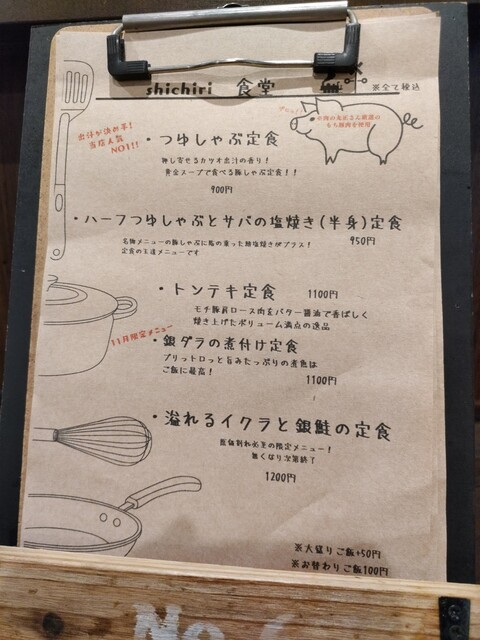 shichiri 食堂
※全て税込
出汁が決め手!
当店人気
NO1!!
・つゆしゃぶ定食
押し寄せるカツオ出汁の香り!
黄金スープで食べる豚しゃぶ定食!!
900円
もち豚肉を使用
・ハーフつゆしゃぶとサバの塩焼き(半身)定食
950円
名物メニューの豚しゃぶに脂の乗った鯖塩焼きがプラス!
定食の王道メニューです
・トンテキ定食 1100円
モチ豚肩ロース肉をバター醤油で香ばしく
焼き上げたボリューム満点の逸品
11月限定メニュー
・銀ダラの煮付け定食
プリっトロっと旨みたっぷりの煮魚は
ご飯に最高!
1100円
・溢れるイクラと銀鮭の定食
原価割れ必至の限定メニュー!
無くなり次第終了
1200円
※大盛りご飯+50円
※お替わりご飯100円
No.